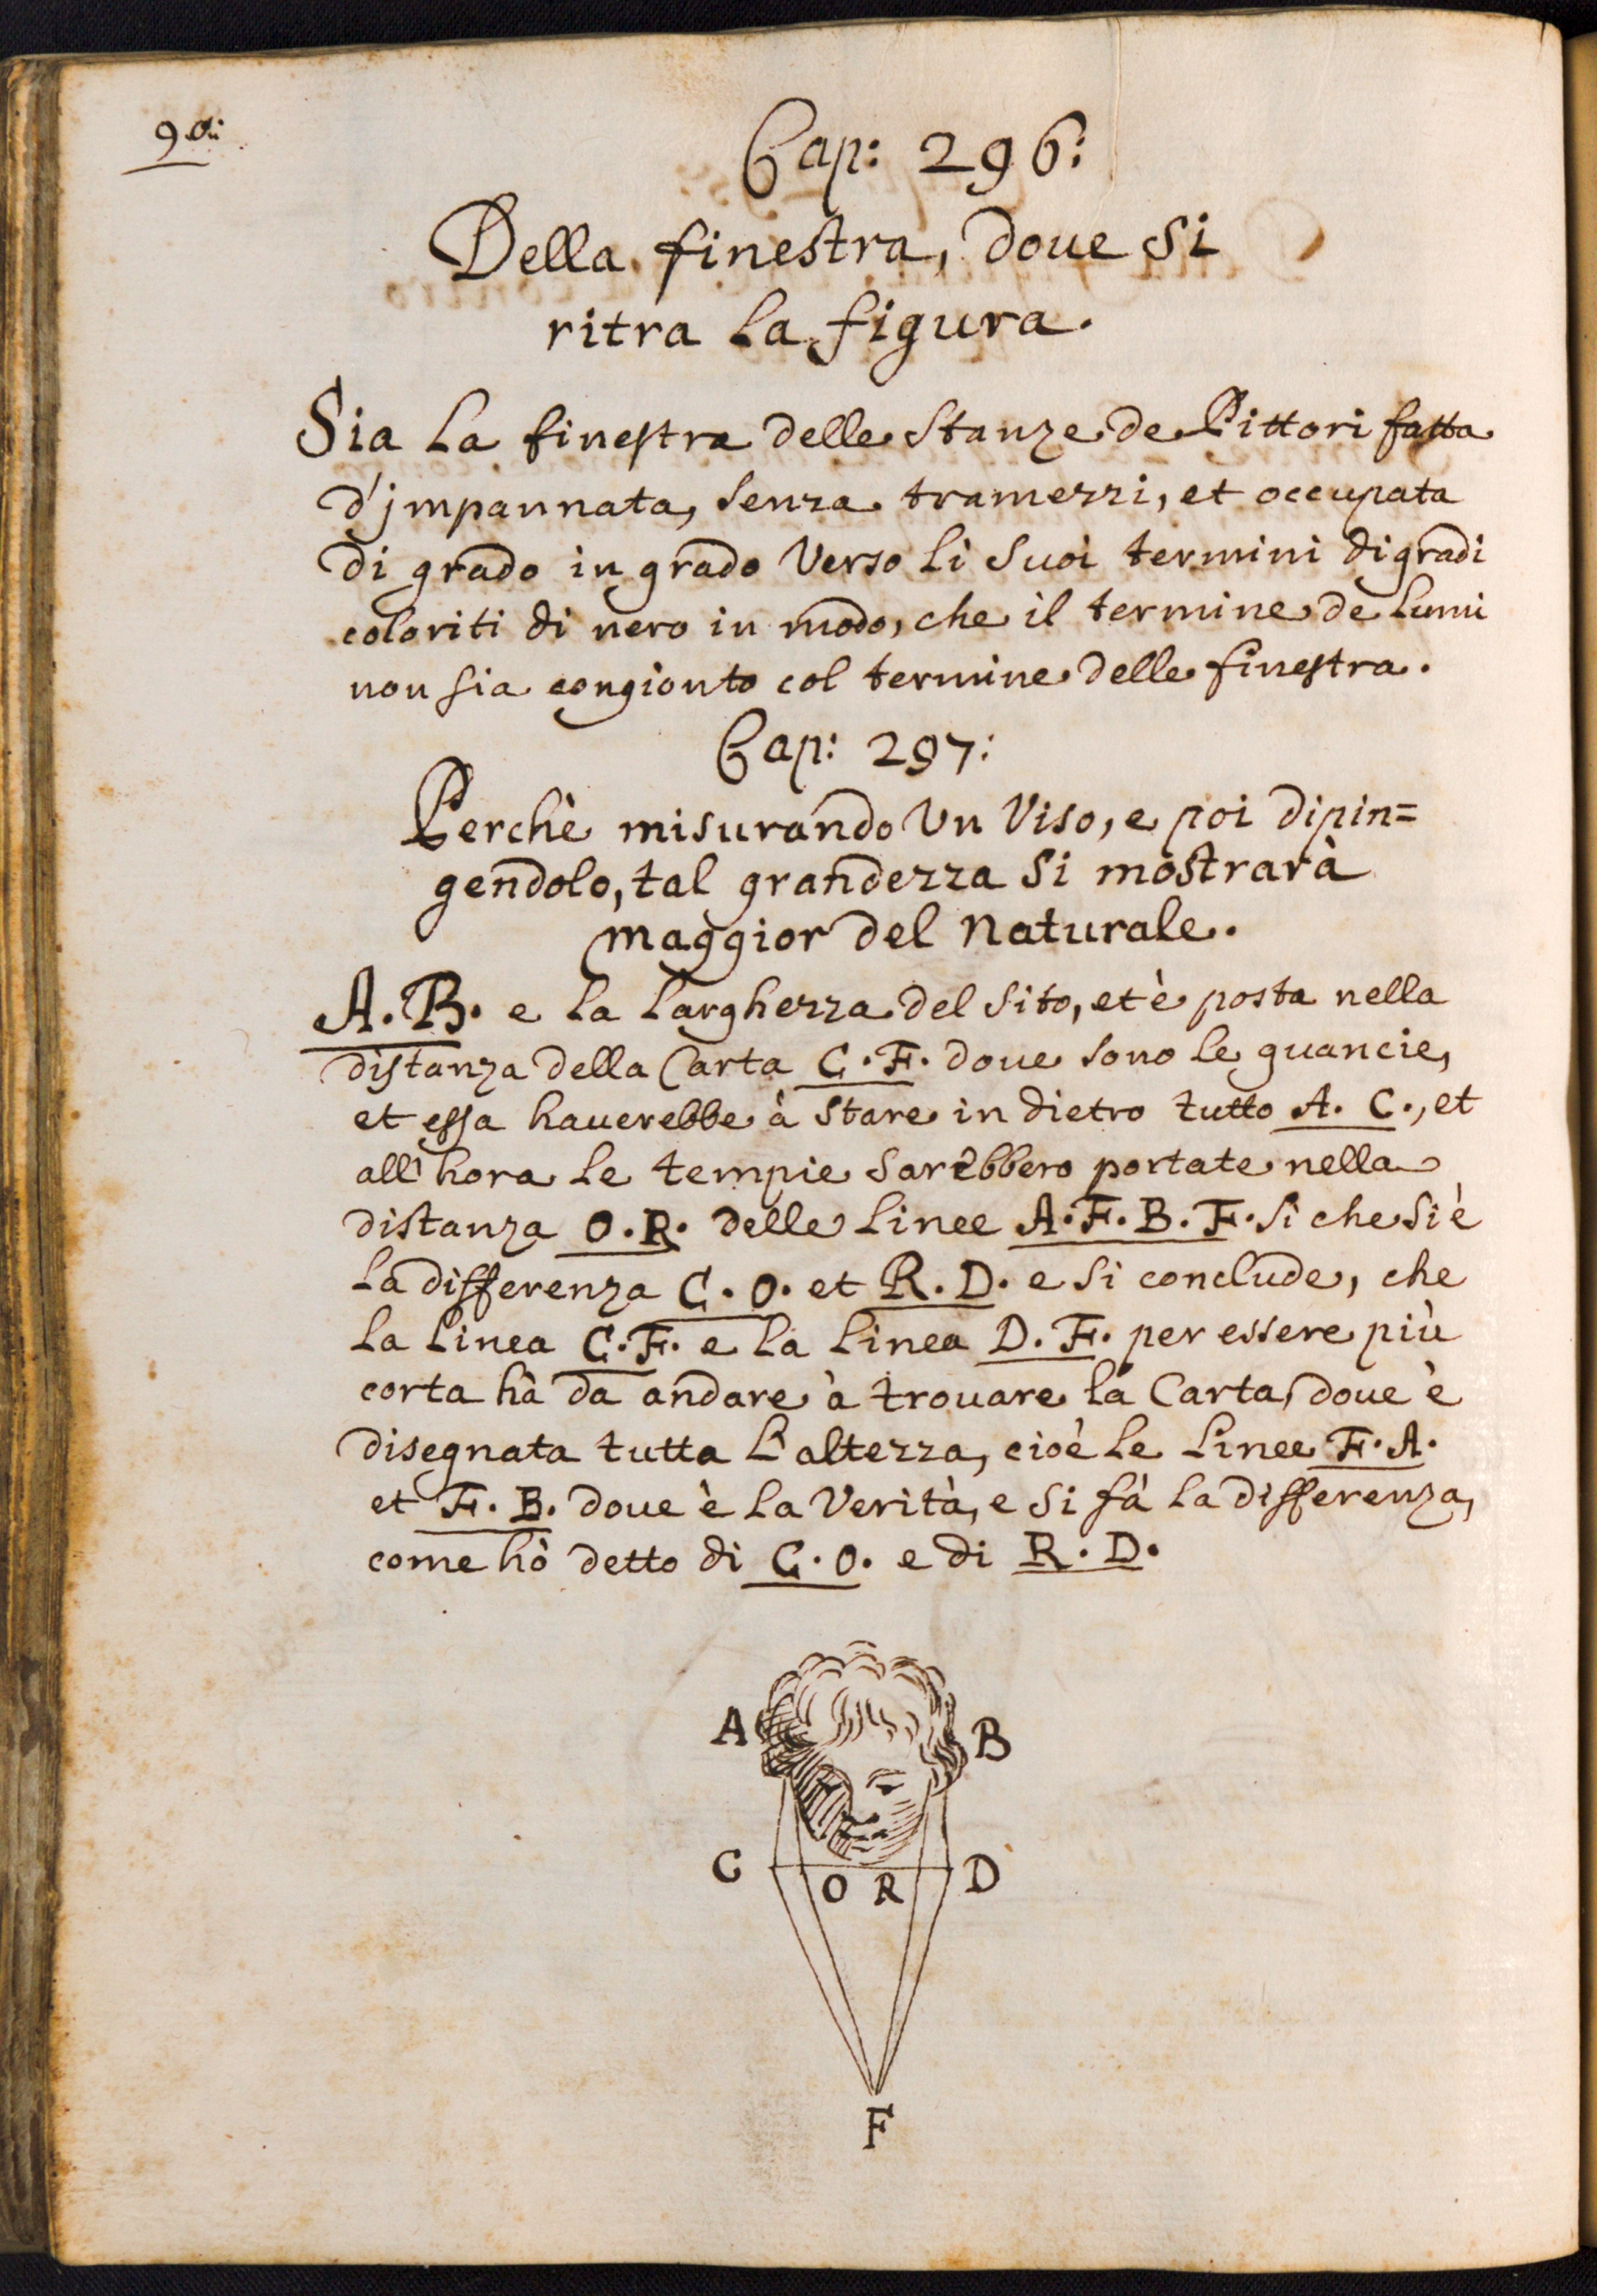 90:
Cap: 296:
Della finestra, doue si
ritra la figura.
Sia la finestra delle stanze de Pittori fatta
d'jmpannata, senza tramezzi, et occupata
di grado in grado verso li suoi termini di gradi
coloriti di nero in modo, che il termine de lumi
non sia congionto col termine delle finestra.
Cap: 297:
Perchè misurando un viso, e poi dipin=
gendolo, tal grandezza si mostrarà
maggior del naturale.
A. B. e la larghezza del sito, et è posta nella
distanza della Carta C. F. doue sono le guancie,
et essa hauerebbe à stare in dietro tutto A. C., et
all'hora le tempie sarebbero portate nella
distanza O. R. delle linee A. F. B. F. si che si è
la differenza C. O. et R. D. e si conclude, che
la linea C. F. e la linea D. F. per essere più
corta hà da andare à trouare la Carta, doue è
disegnata tutta l'altezza, cioè le linee F. A.
et F. B. doue è la verità, e si fà la differenza,
come hò detto di C. O. e di R. D.
A B
C O R D
F